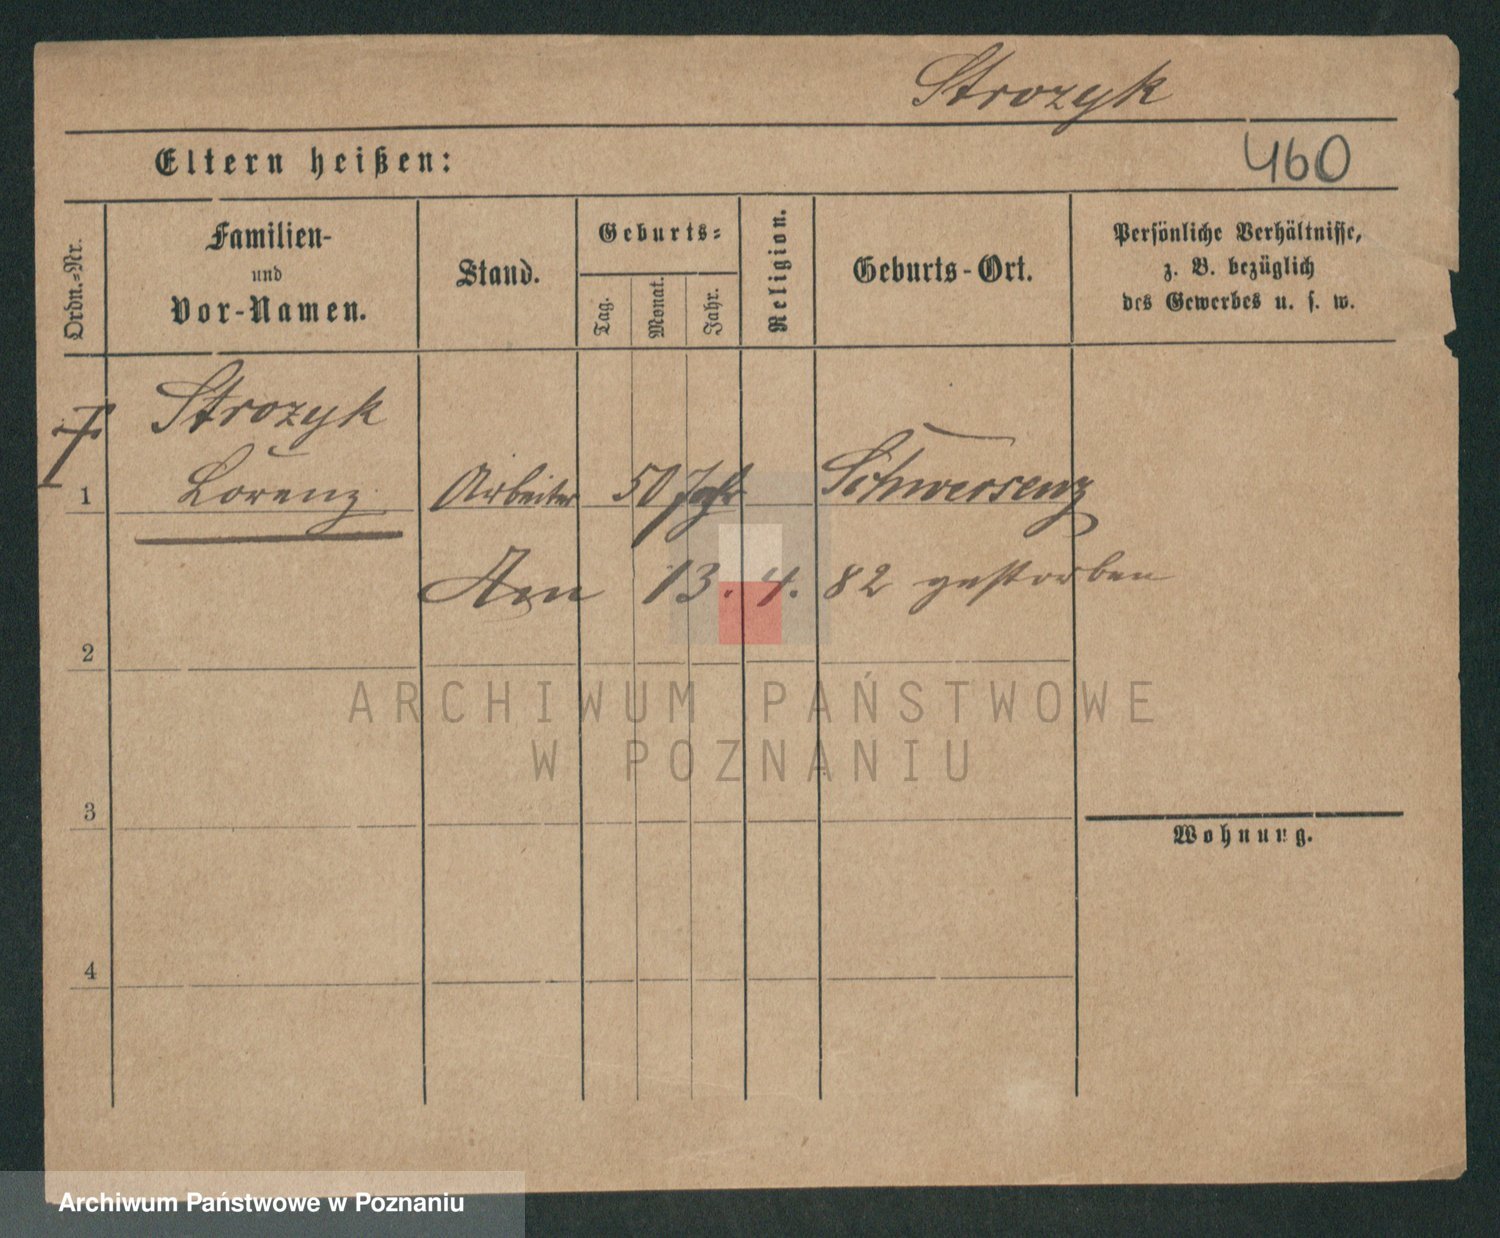 Strozyk
460
Eltern heißen:
Ordn.-Nr.
Familien-
und
Vor-Namen.
Stand.
Geburts-
Tag.
Monat.
Jahr.
Religion.
Geburts-Ort.
Persönliche Verhältnisse,
z. B. bezüglich
des Gewerbes u. s. w.
Strozyk
1 Lorenz Arbeiter 50 Jahr Schwersenz
Am 13. 4. 82 gestorben
2
ARCHIWUM PAŃSTWOWE
W POZNANIU
3
Wohnung.
4
Archiwum Państwowe w Poznaniu